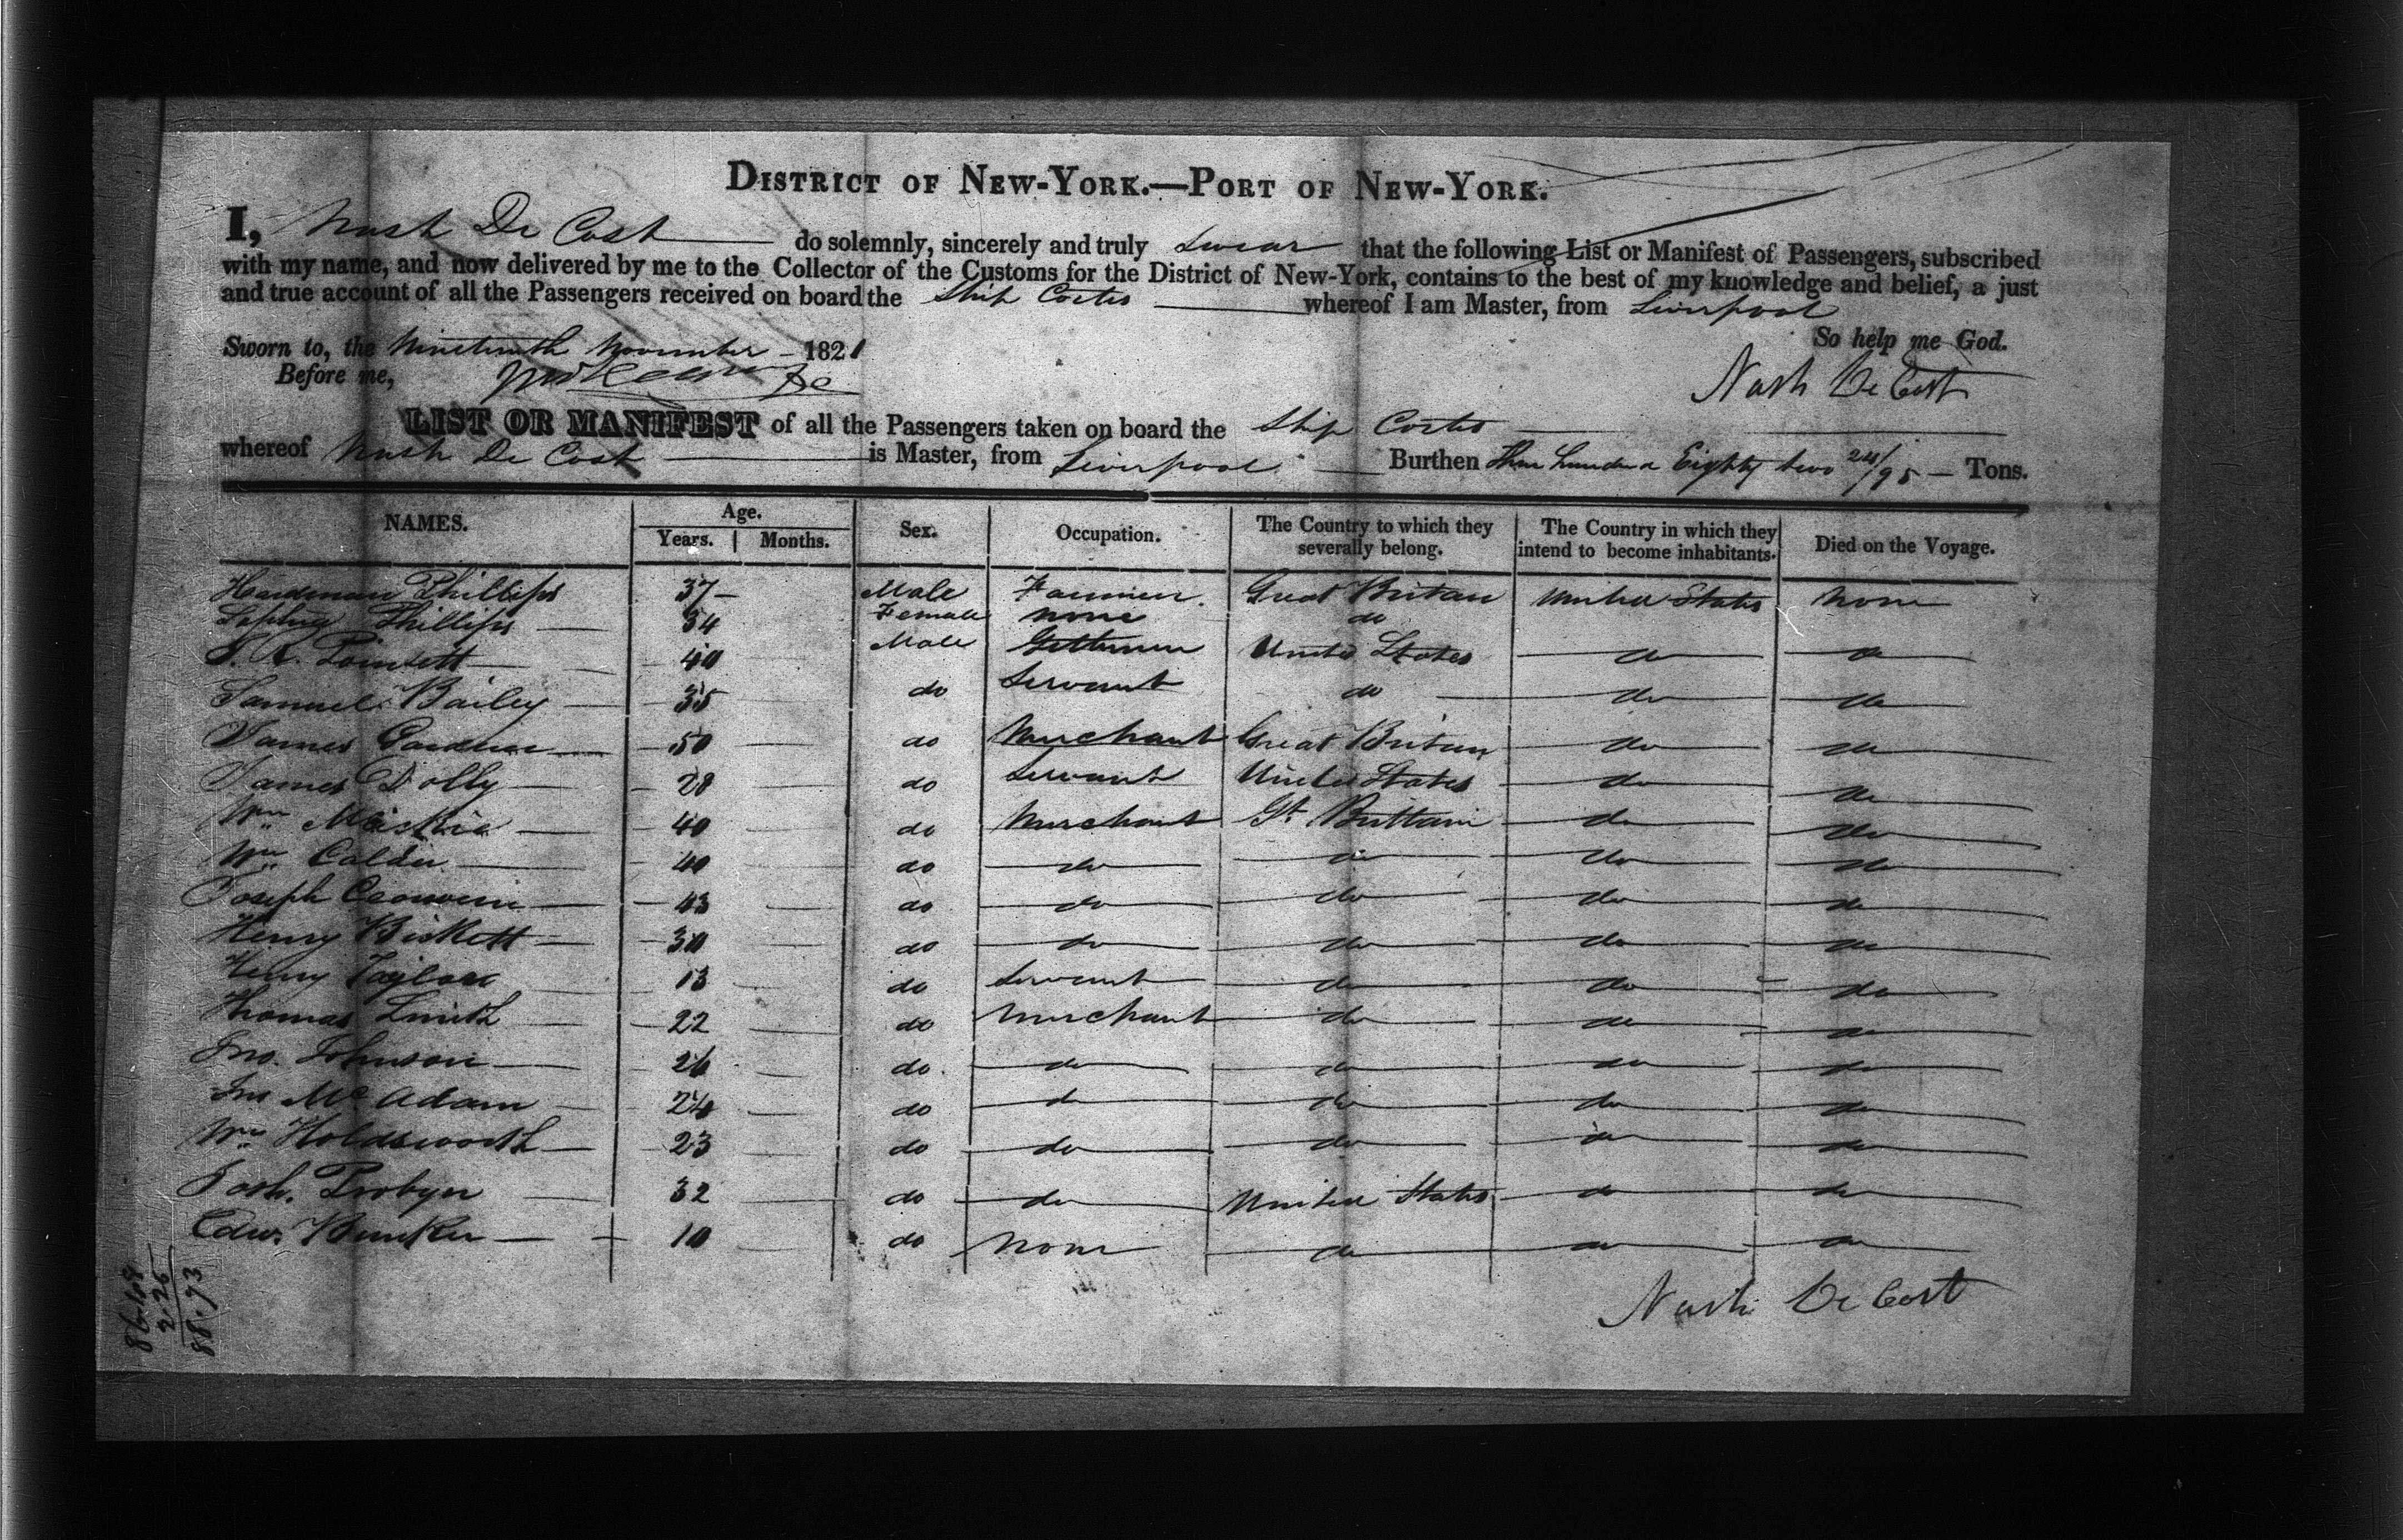 DISTRICT OF NEW-YORK.—PORT OF NEW-YORK.
I, Nash De Cost do solemnly, sincerely and truly swear that the following List or Manifest of Passengers, subscribed
with my name, and now delivered by me to the Collector of the Customs for the District of New-York, contains to the best of my knowledge and belief, a just
and true account of all the Passengers received on board the Ship Cortes whereof I am Master, from Liverpool
So help me God.
Sworn to, the Nineteenth November 1821
Before me,
Nash De Cost
LIST OR MANIFEST of all the Passengers taken on board the Ship Cortes
whereof Nash De Cost is Master, from Liverpool Burthen Three hundred Eighty two 24/95 Tons.
NAMES. Age. Years. Months. Sex. Occupation. The Country to which they severally belong. The Country in which they intend to become inhabitants. Died on the Voyage.
Hardman Phillips 37 Male Farmer Great Britain United States None
Sophia Phillips 34 Female none do
J. R. Poinsett 40 Male Gentleman United States do do
Samuel Bailey 35 do Servant do do do
James 50 do Merchant Great Britain do do
James Dolly 28 do Servant United States do do
Wm 40 do Merchant Gt. Brittain do do
Wm Calder 40 do do do do do
Joseph 43 do do do do do
Henry Biskett 30 do do do do do
Henry Taylor 13 do Servant do do do
Thomas Smith 22 do Merchant do do do
Jno. Johnson 26 do do do do do
Jno McAdam 24 do do do do do
Wm Holdsworth 23 do do do do do
Josh. Probyn 32 do do United States do do
Edw. Bunker 10 do none do do do
Nash De Cost
2.26
88.73